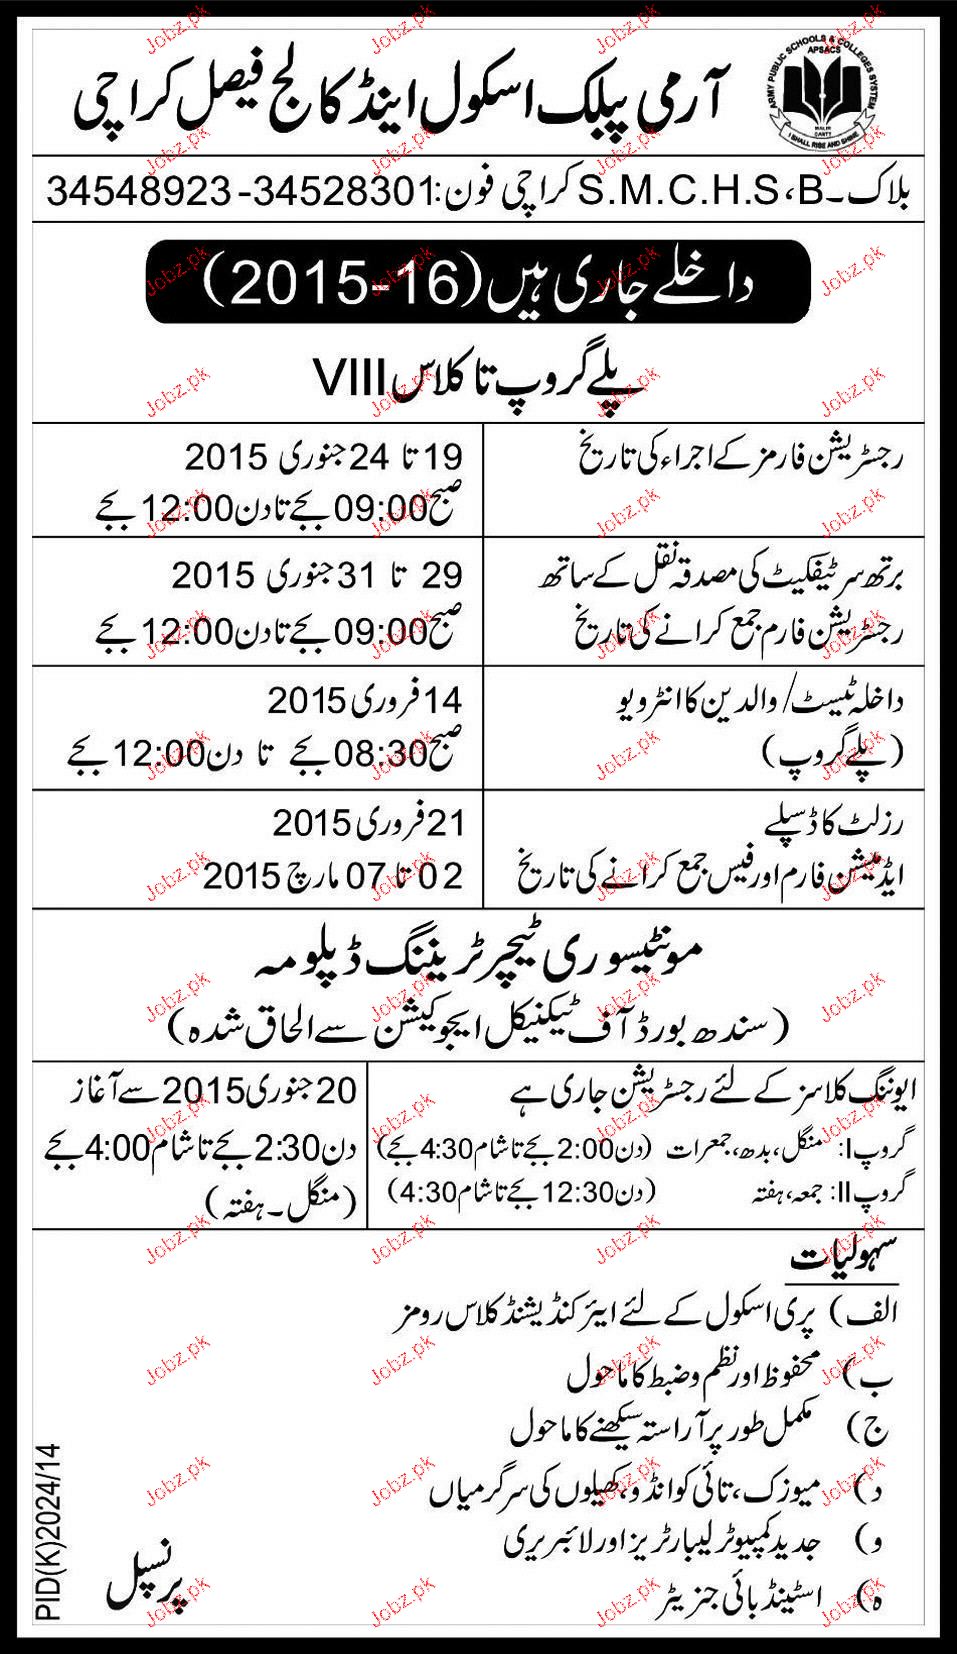 ARMY PUBLIC SCHOOLS & COLLEGES SYSTEM
APSACS
MALIR
CANTT
I SHALL RISE AND SHINE
آرمی پبلک اسکول اینڈ کالج فیصل کراچی
بلاک۔S.M.C.H.S،B کراچی فون:34528301-34548923
داخلے جاری ہیں (2015-16)
پلے گروپ تا کلاس VIII
رجسٹریشن فارمز کے اجراء کی تاریخ
19 تا 24 جنوری 2015
صبح 09:00 بجے تا دن 12:00 بجے
برتھ سرٹیفکیٹ کی مصدقہ نقل کے ساتھ
رجسٹریشن فارم جمع کرانے کی تاریخ
29 تا 31 جنوری 2015
صبح 09:00 بجے تا دن 12:00 بجے
داخلہ ٹیسٹ/ والدین کا انٹرویو
(پلے گروپ)
14 فروری 2015
صبح 08:30 بجے تا دن 12:00 بجے
رزلٹ کا ڈسپلے
21 فروری 2015
ایڈمیشن فارم اور فیس جمع کرانے کی تاریخ
02 تا 07 مارچ 2015
مونٹیسوری ٹیچر ٹریننگ ڈپلومہ
(سندھ بورڈ آف ٹیکنیکل ایجوکیشن سے الحاق شدہ)
ایوننگ کلاسز کے لئے رجسٹریشن جاری ہے
گروپ I: منگل، بدھ، جمعرات (دن 2:00 بجے تا شام 4:30 بجے)
گروپ II: جمعہ، ہفتہ (دن 12:30 بجے تا شام 4:30)
20 جنوری 2015 سے آغاز
دن 2:30 بجے تا شام 4:00 بجے
(منگل۔ ہفتہ)
سہولیات
الف) پری اسکول کے لئے ایئر کنڈیشنڈ کلاس رومز
ب) محفوظ اور نظم و ضبط کا ماحول
ج) مکمل طور پر آراستہ سیکھنے کا ماحول
د) میوزک، تائی کوانڈو، کھیلوں کی سرگرمیاں
و) جدید کمپیوٹر لیبارٹریز اور لائبریری
ہ) اسٹینڈ بائی جنریٹر
پرنسپل
PID(K)2024/14
Jobz.pk